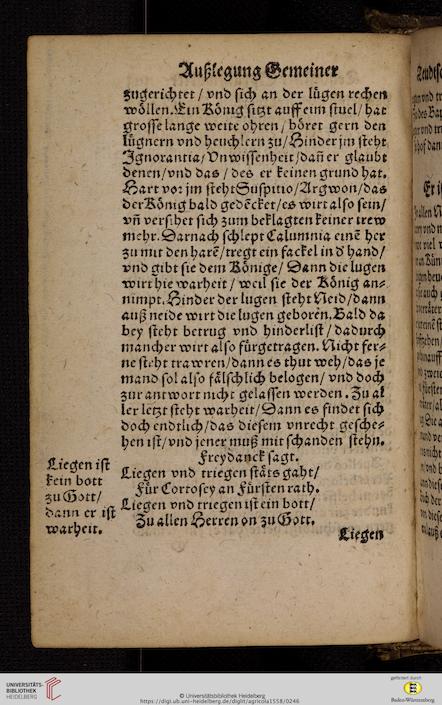 Außlegung Gemeiner
zugerichtet / vnd sich an der lügen rechen
wöllen. Ein König sitzt auff eim stuel / hat
grosse lange weite ohren / höret gern den
lügnern vnd heuchlern zu / Hinder jm steht
Ignorantia / Vnwissenheit / dañ er glaubt
denen / vnd das / des er keinen grund hat.
Hart vor jm steht Suspitio / Argwon / das
der König bald gedẽcket / es wirt also sein /
vñ versihet sich zum beklagten keiner trew
mehr. Darnach schlept Calumnia einẽ her
zu mit den harẽ / tregt ein fackel in d' hand /
vnd gibt sie dem Könige / Dann die lugen
wirt hie warheit / weil sie der König an-
nimpt. Hinder der lugen steht Neid / dann
auß neide wirt die lugen geborẽn. Bald da
bey steht betrug vnd hinderlist / dadurch
mancher wirt also fürgetragen. Nicht fer-
ne steht trawren / dann es thut weh / das je
mand sol also fälschlich belogen / vnd doch
zur antwort nicht gelassen werden. Zu al
ler letzt steht warheit / Dann es findet sich
doch endtlich / das diesem vnrecht gesche-
hen ist / vnd jener muß mit schanden stehn.
Freydanck sagt.
Liegen vnd triegen stäts gaht /
Für Cortosey an Fürsten rath.
Liegen vnd triegen ist ein bott /
Zu allen Herren on zu Gott.
Liegen ist
kein bott
zu Gott /
dann er ist
warheit.
Liegen
UNIVERSITÄTS-
BIBLIOTHEK
HEIDELBERG
© Universitätsbibliothek Heidelberg
https://digi.ub.uni-heidelberg.de/diglit/agricola1558/0246
gefördert durch
Baden-Württemberg